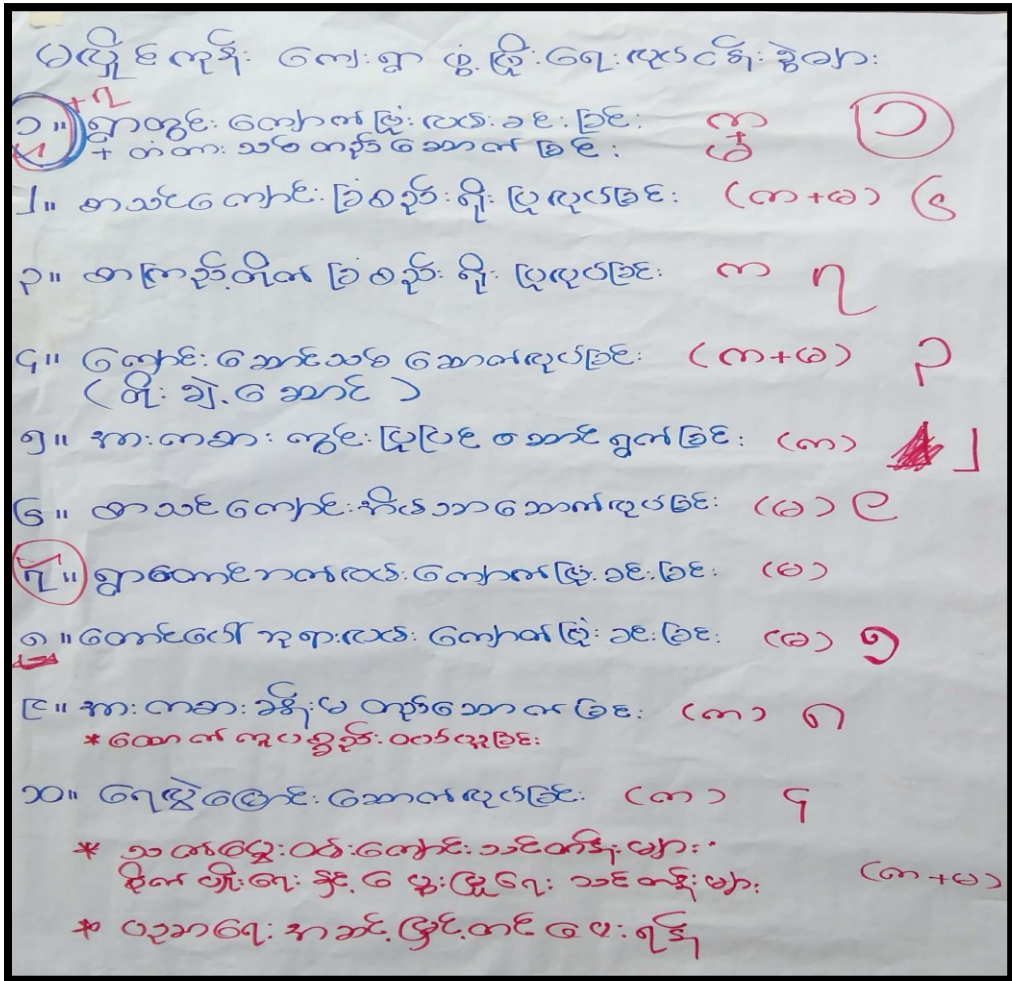 မလှိုင်ကုန်း ကျေးရွာ ဖွံ့ဖြိုးရေးလုပ်ငန်းစဉ်များ
+ ၇
၁။ ရွာတွင်း ကျောက်ဖြုံးလမ်းခင်းခြင်း က ၁
+ တံတားသစ်တည်ဆောက်ခြင်း
၂။ စာသင်ကျောင်းခြံစည်းရိုးပြုလုပ်ခြင်း (က+မ) ၆
၃။ စာကြည့်တိုက်ခြံစည်းရိုးပြုလုပ်ခြင်း က ၇
၄။ ကျောင်းဆောင်သစ်ဆောက်လုပ်ခြင်း (က+မ) ၃
(တိုးချဲ့ဆောင်)
၅။ အားကစားကွင်းပြုပြင်ဆောင်ရွက်ခြင်း (က) ၂
၆။ စာသင်ကျောင်းအိမ်သာဆောက်လုပ်ခြင်း (မ) ၉
၇။ ရွာတောင်ဘက်လမ်းကျောက်ဖြုံးခင်းခြင်း (မ)
၈။ တောင်ပေါ်ဘုရားလမ်းကျောက်ဖြုံးခင်းခြင်း (မ) ၅
၉။ အားကစားခန်းမတည်ဆောက်ခြင်း (က) ၈
* ထောက်ကူပစ္စည်းဝယ်ယူခြင်း
၁၀။ ရေပွဲမြောင်းဆောက်လုပ်ခြင်း (က) ၄
* သက်မွေးဝမ်းကျောင်းသင်တန်းများ
စိုက်ပျိုးရေးနှင့်မွေးမြူရေးသင်တန်းများ (က+မ)
* ပညာရေးအဆင့်မြှင့်တင်ပေးရန်